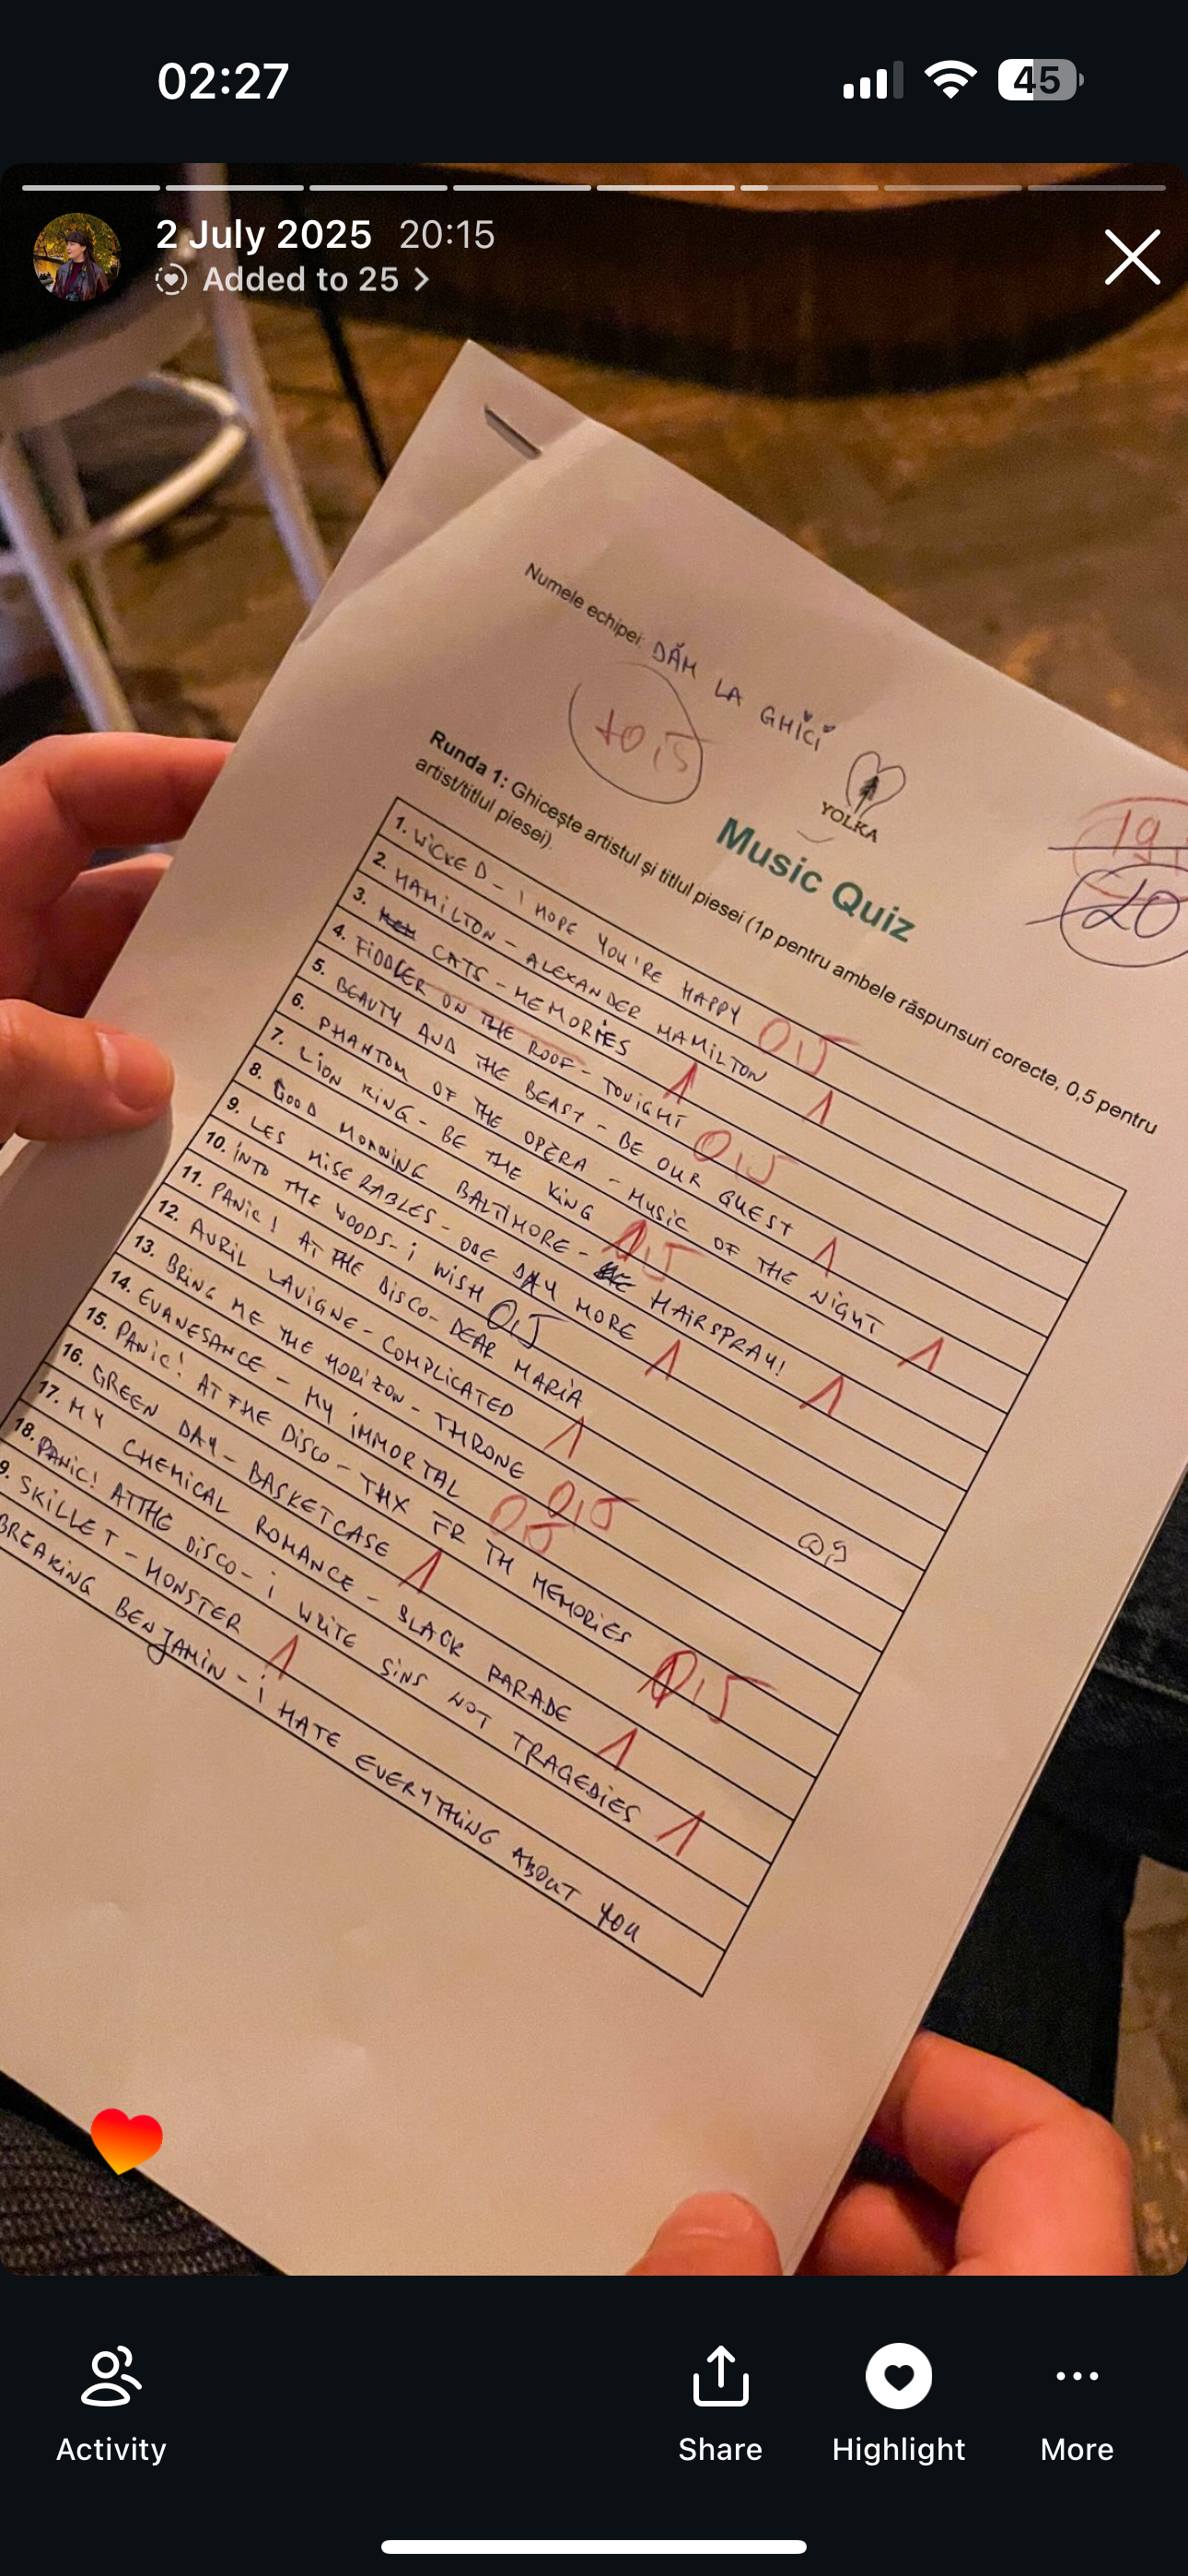 02:27
45
2 July 2025 20:15
Added to 25 >
Numele echipei: DĂM LA GHICI
+0,5
YOLKA
Music Quiz
19,
20
Runda 1: Ghicește artistul și titlul piesei (1p pentru ambele răspunsuri corecte, 0,5 pentru
artist/titlul piesei).
1. WICKED - I HOPE YOU'RE HAPPY 0,5
2. HAMILTON - ALEXANDER HAMILTON 1
3. CATS - MEMORIES 1
4. FIDDLER ON THE ROOF - TONIGHT 0,5
5. BEAUTY AND THE BEAST - BE OUR GUEST 1
6. PHANTOM OF THE OPERA - MUSIC OF THE NIGHT 1
7. LION KING - BE THE KING 0,5
8. GOOD MORNING BALTIMORE - HAIRSPRAY! 1
9. LES MISERABLES - ONE DAY MORE 1
10. INTO THE WOODS - I WISH 0,5
11. PANIC! AT THE DISCO - DEAR MARIA
12. AVRIL LAVIGNE - COMPLICATED 1
13. BRING ME THE HORIZON - THRONE 0,5
0,5
14. EVANESANCE - MY IMMORTAL 0,5
15. PANIC! AT THE DISCO - THX FR TH MEMORIES 0,5
16. GREEN DAY - BASKETCASE 1
17. MY CHEMICAL ROMANCE - BLACK PARADE 1
18. PANIC! AT THE DISCO - I WRITE SINS NOT TRAGEDIES 1
9. SKILLET - MONSTER 1
BREAKING BENJAMIN - I HATE EVERYTHING ABOUT YOU
Activity
Share
Highlight
More